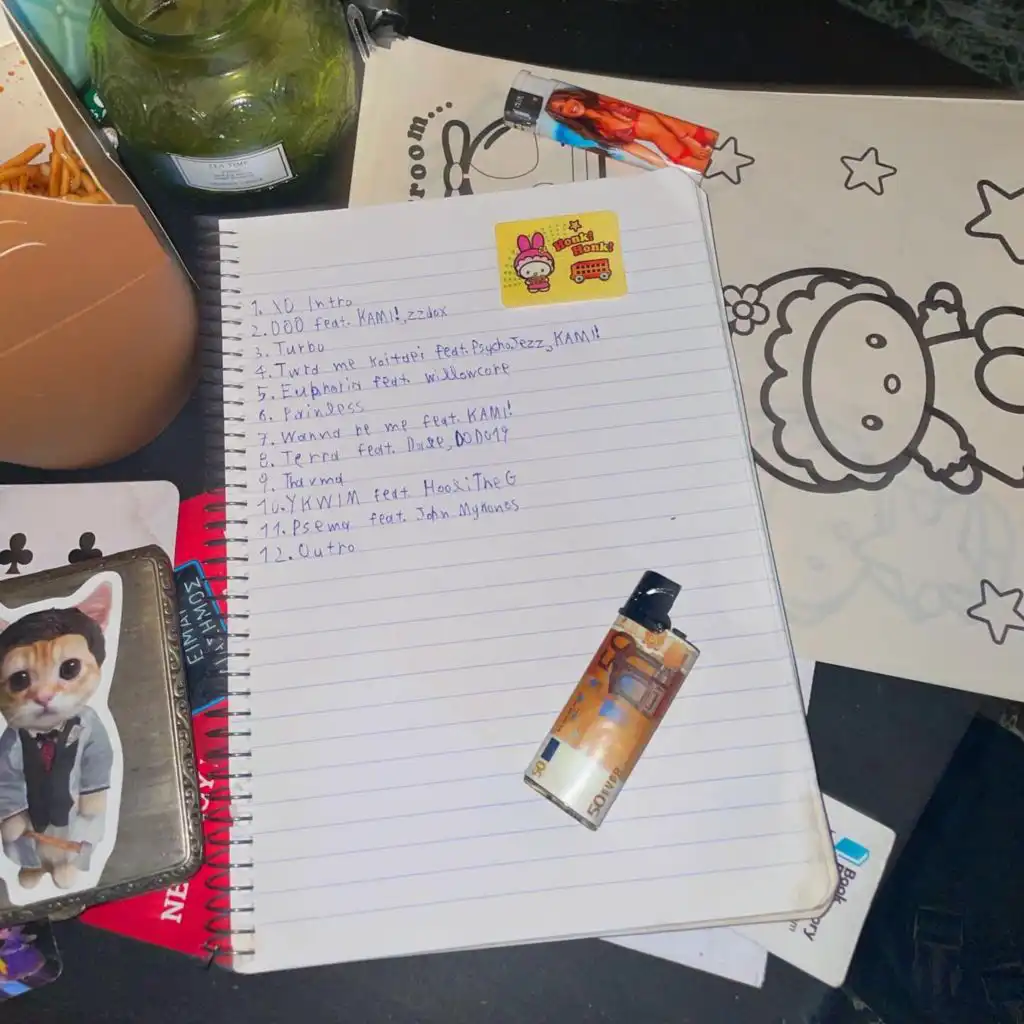 room...
TEA TIME
Honk!
Honk!
1. XO Intro
2. DOO feat. KAMI!, zzdox
3. Turbo
4. Twra me koitaei feat. PsychoJezz, KAMI!
5. Euphoria feat. willowcore
6. Painless
7. Wanna be me feat. KAMI!
8. Terra feat. Dare, DODO19
9. Thavma
10. YKWIM feat. HookiTheG
11. Psema feat. John Mykonos
12. Outro
ΕΙΜΑΙ
ΑΣΗΜΟΣ
50
50
Book